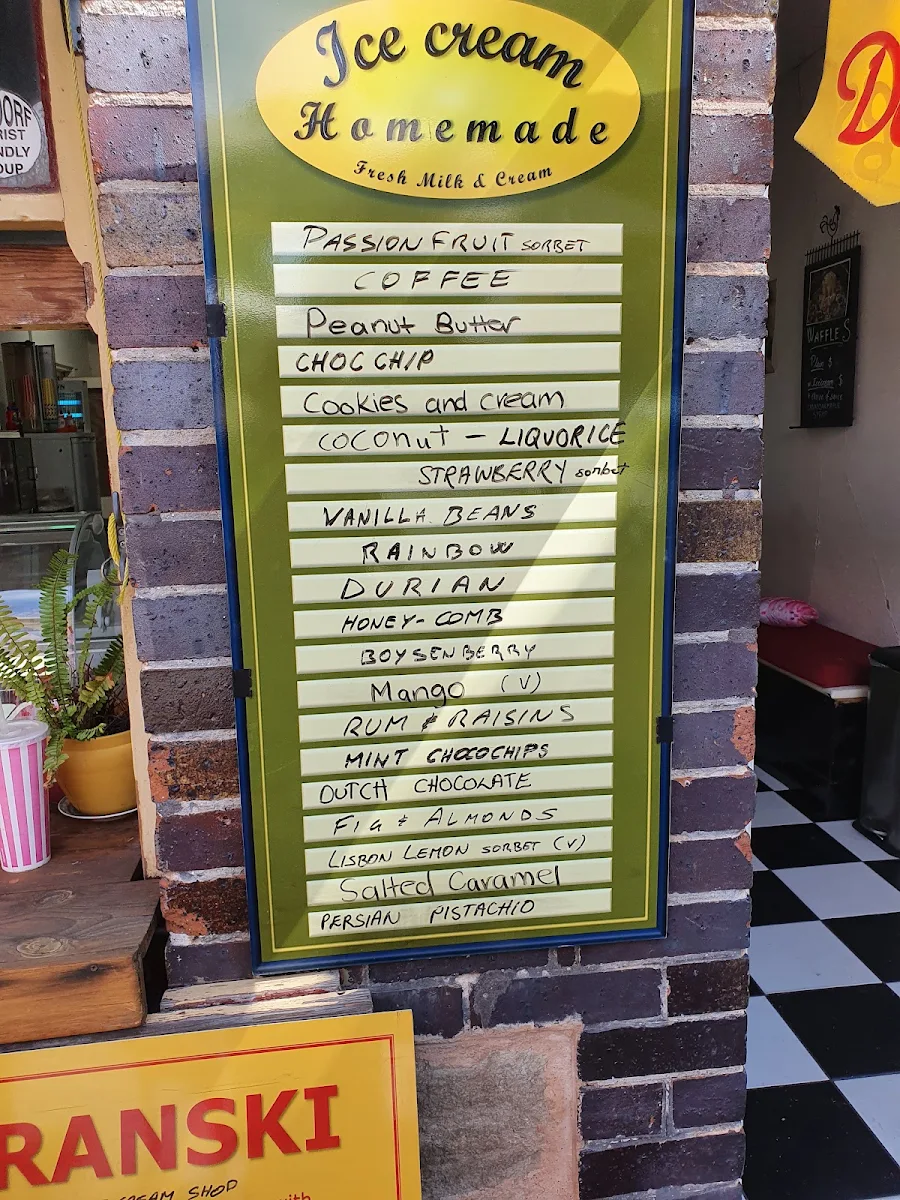 Ice cream
Homemade
Fresh Milk & Cream
PASSION FRUIT SORBET
COFFEE
Peanut Butter
CHOC CHIP
Cookies and cream
COCONUT - LIQUORICE
STRAWBERRY sorbet
VANILLA BEANS
RAINBOW
DURIAN
HONEY-COMB
BOYSENBERRY
Mango (V)
RUM & RAISINS
MINT CHOCOCHIPS
DUTCH CHOCOLATE
FIG & ALMONDS
LISBON LEMON SORBET (V)
Salted Caramel
PERSIAN PISTACHIO
DORF
RIST
NDLY
OUP
WAFFLES
RANSKI
CREAM SHOP
with